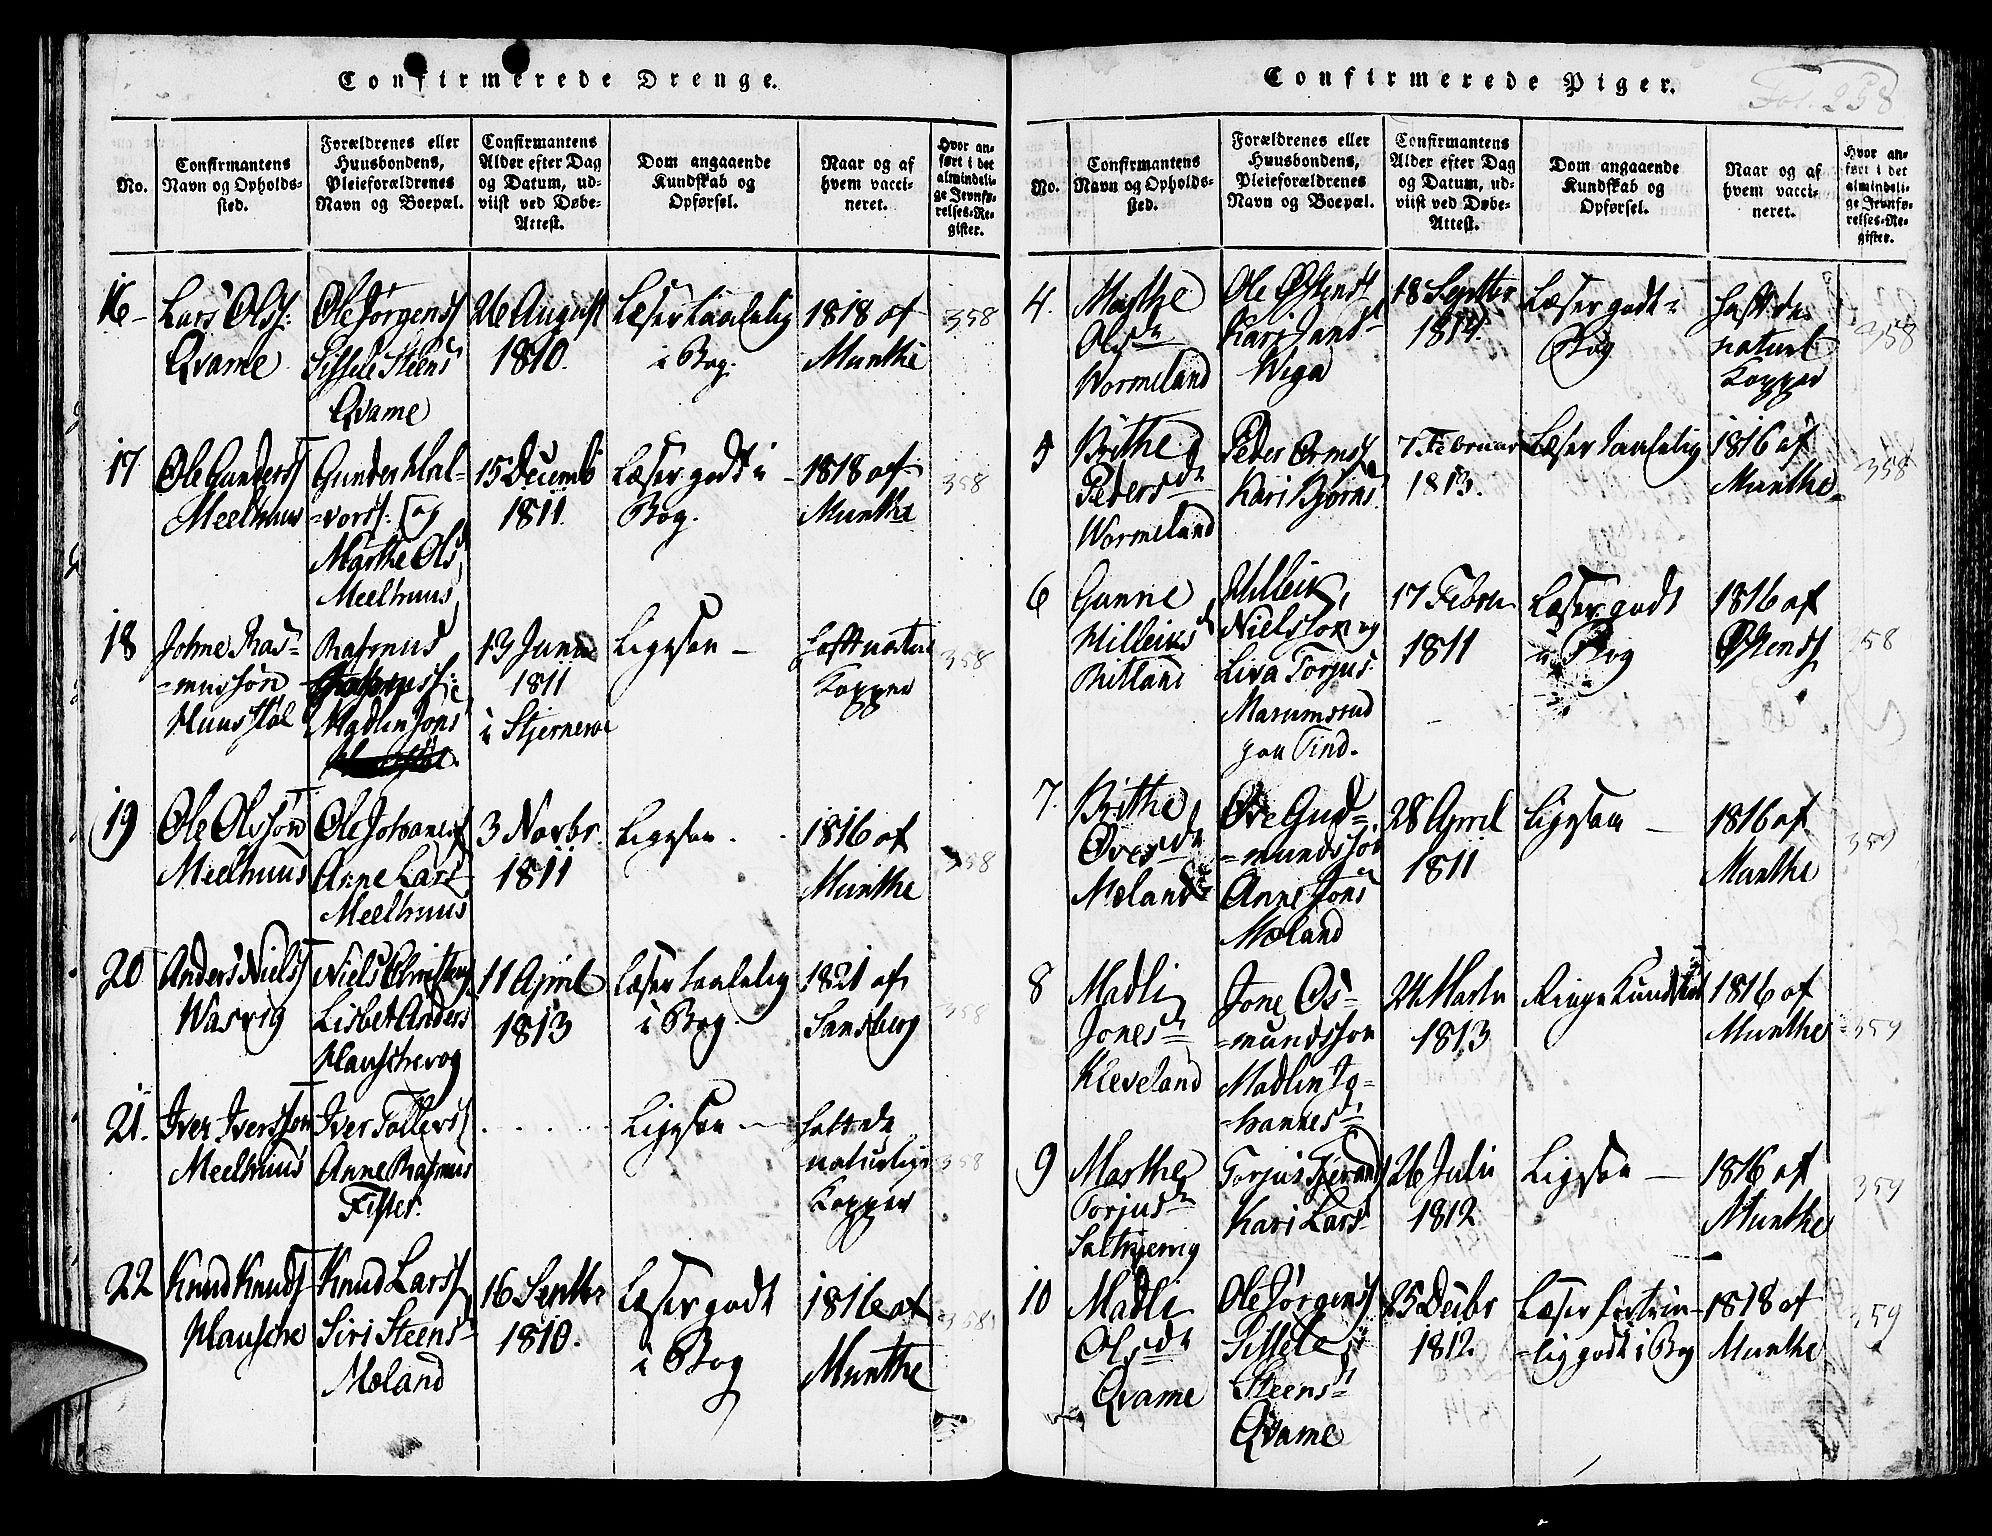 Confirmerede Drenge.
No.
Confirmantens
Navn og Opholds-
sted.
Forældrenes eller
Huusbondens,
Pleieforældrenes
Navn og Boepæl.
Confirmantens
Alder efter Dag
og Datum, ud-
viist ved Døbe-
Attest.
Dom angaaende
Kundskab og
Opførsel.
Naar og af
hvem vacci-
neret.
Hvor an-
ført i det
almindeli-
ge Jevnfø-
relses-Re-
gister.
16
Lars Olss:
Qvame
Ole Jørgenss
Sissele Steens
Qvame
26 August
1810.
Læser taalelig
i Bog.
1818 af
Munthe
358
17
Ole Gunderss
Meelhuus
Gunder Hal-
=vorss: og
Marthe Ols
Meelhuus
15 Decemb
1811.
Læser godt i
Bog.
1818 af
Munthe
358
18
Johne Ras=
=mussøn
Huusstøl
Rasmus
Madlin Jons
13 Juni
1811
i Stjerneroe
Ligesaa
Haft naturl
Kopper
358
19
Ole Olssøn
Meelhuus
Ole Johannes
Anne Lars
Meelhuus
3 Novbr.
1811
Ligesaa.
1816 af
Munthe
358
20
Anders Nielss
Wasvig
Niels Christens
Lisbet Anders
11 April
1813
Læser taalelig
i Bog.
1821 af
Sansberg
358
21.
Iver Iverssøn
Meelhuus
Iver Tollerss
Anne Rasmus
Fister.
Ligesaa
haft de
naturlige
Kopper
358
22
Knud Knuds
Hausche
Knud Larss
Siri Steens
Moland
16 Septbr
1810.
Læser godt
i Bog
1816 af
Munthe
358
Confirmerede Piger.
Fol. 258
No.
Confirmantens
Navn og Opholds-
sted.
Forældrenes eller
Huusbondens,
Pleieforældrenes
Navn og Boepæl.
Confirmantens
Alder efter Dag
og Datum, ud-
viist ved Døbe-
Attest.
Dom angaaende
Kundskab og
Opførsel.
Naar og af
hvem vacci-
neret.
Hvor an-
ført i det
almindeli-
ge Jevnfø-
relses-Re-
gister.
4.
Marthe
Olsdr
Wormeland
Ole Østends
Kari Jansd
Wiga
18 Septbr
1814.
Læser godt i
Bog
haft de
naturl
Kopper
358
5
Brithe
Pedersdr
Wormeland
Peder Ormss
Kari Bjørns
7 Februar
1813.
Læser taalelig
1816 af
Munthe
358
6
Gunne
Milleiks
Britland
Milleik
Nielssøn og
Liva Torjus
Marumsrud
paa Tind.
17 Febru
1811
Læser godt
i Bog
1816 af
Østends
58
7.
Brithe
Ovesdr
Moland
Ove Gud=
=mundssøn
Anne Jons
Moland
28 April
1811
Ligesaa
1816 af
Munthe
359
8
Madli
Jonesdr
Kleveland
Jone Os=
=mundssøn
Madlin Jo=
=hannesd
24 Marts
1813
Ringe Kundskab
1816 af
Munthe
359
9
Marthe
Torjusdr
Torjus Tjerands
Kari Lars
26 Juli
1812
Ligesaa
1816 af
Munthe
359
10
Madli
Olsdr
Qvame
Ole Jørgenss
Sissele
Steens
Qvame
25 Decbr
1812.
Læser fortrin=
=lig godt i Bog
1818 af
Munthe
359